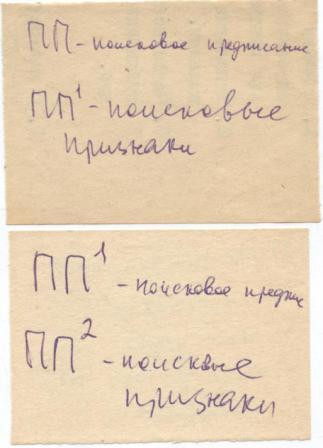 ПП - поисковое предписание
ПП¹ - поисковые
признаки
ПП¹ - поисковое предпис
ПП² - поисквые
признаки